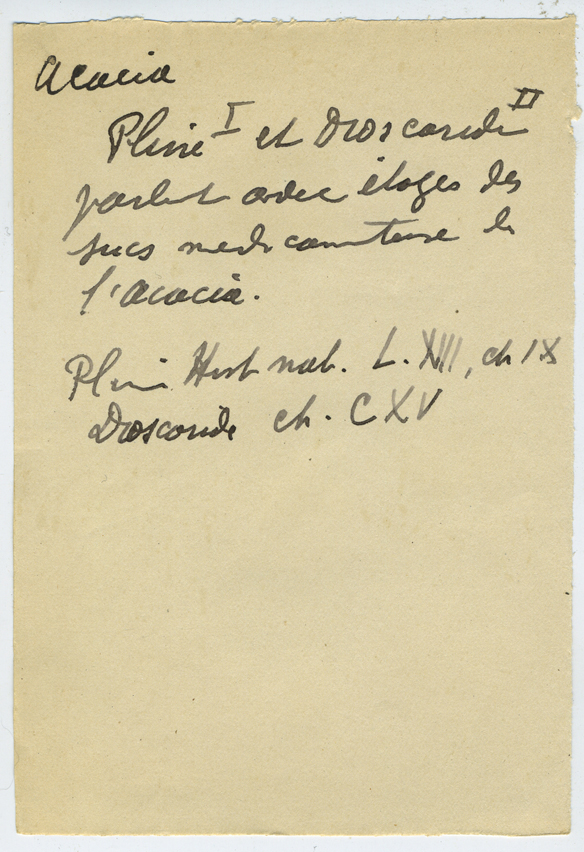 Acacia
Pline I et Dioscoride II
parlent avec éloges des
sucs medicamenteux de
l'acacia.
Pline Hist nat. L. XIII, ch IX
Dioscoride ch. CXV